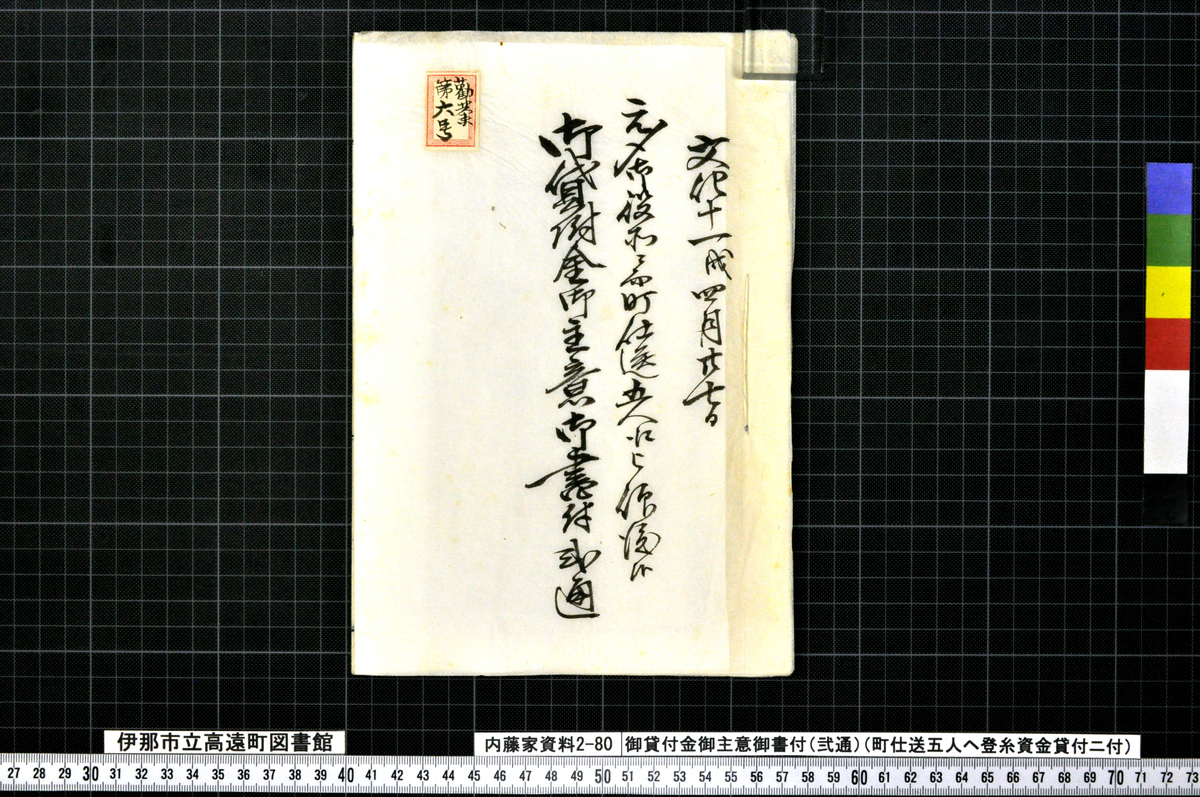 文化十一戌四月廿七日
元〆御役所ニ而町仕送五人江被仰渡候
御貸附金御主意御書付弐通
勧業
第六号
伊那市立高遠町図書館
内藤家資料2-80
御貸付金御主意御書付(弐通)(町仕送五人へ登糸資金貸付ニ付)
27 28 29 30 31 32 33 34 35 36 37 38 39 40 41 42 43 44 45 46 47 48 49 50 51 52 53 54 55 56 57 58 59 60 61 62 63 64 65 66 67 68 69 70 71 72 73